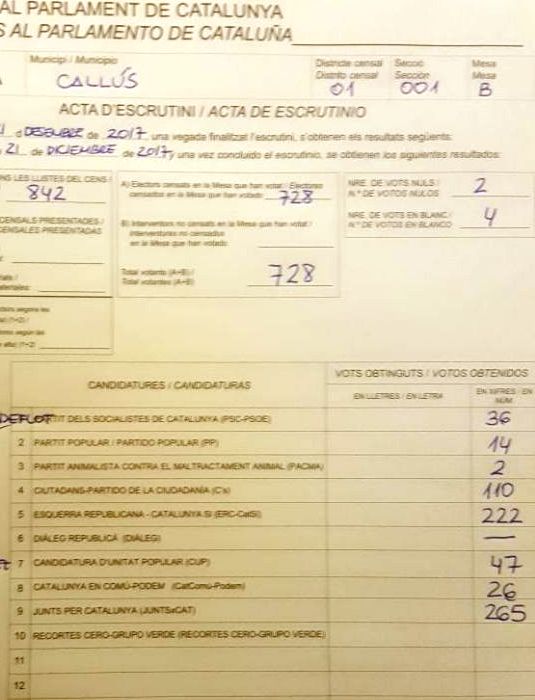 AL PARLAMENT DE CATALUNYA
S AL PARLAMENTO DE CATALUÑA
Municipi / Municipio
CALLÚS
Districte censal
Distrito censal
01
Secció
Sección
001
Mesa
Mesa
B
ACTA D'ESCRUTINI / ACTA DE ESCRUTINIO
d DESEMBRE de 2017 una vegada finalitzat l'escrutini, s'obtenen els resultats següents:
21 de DICIEMBRE de 2017, y una vez concluido el escrutinio, se obtienen los siguientes resultados:
NS LES LLISTES DEL CENS
842
CENSALS PRESENTADES /
CENSALES PRESENTADAS
A) Electors censats en la Mesa que han votat / Electores
censados en la Mesa que han votado
728
B) Interventors no censats en la Mesa que han votat /
Interventores no censados
en la Mesa que han votado
Total votants (A+B) /
Total votantes (A+B)
728
NRE. DE VOTS NULS /
N.º DE VOTOS NULOS
2
NRE. DE VOTS EN BLANC /
N.º DE VOTOS EN BLANCO
4
CANDIDATURES / CANDIDATURAS
VOTS OBTINGUTS / VOTOS OBTENIDOS
EN LLETRES / EN LETRA
EN XIFRES / EN
NÚM.
TIT DELS SOCIALISTES DE CATALUNYA (PSC-PSOE) 36
2 PARTIT POPULAR / PARTIDO POPULAR (PP) 14
3 PARTIT ANIMALISTA CONTRA EL MALTRACTAMENT ANIMAL (PACMA) 2
4 CIUTADANS-PARTIDO DE LA CIUDADANÍA (C's) 110
5 ESQUERRA REPUBLICANA - CATALUNYA SÍ (ERC-CatSí) 222
6 DIÀLEG REPUBLICÀ (DIÀLEG) —
7 CANDIDATURA D'UNITAT POPULAR (CUP) 47
8 CATALUNYA EN COMÚ-PODEM (CatComú-Podem) 26
9 JUNTS PER CATALUNYA (JUNTSxCAT) 265
10 RECORTES CERO-GRUPO VERDE (RECORTES CERO-GRUPO VERDE)
11
12